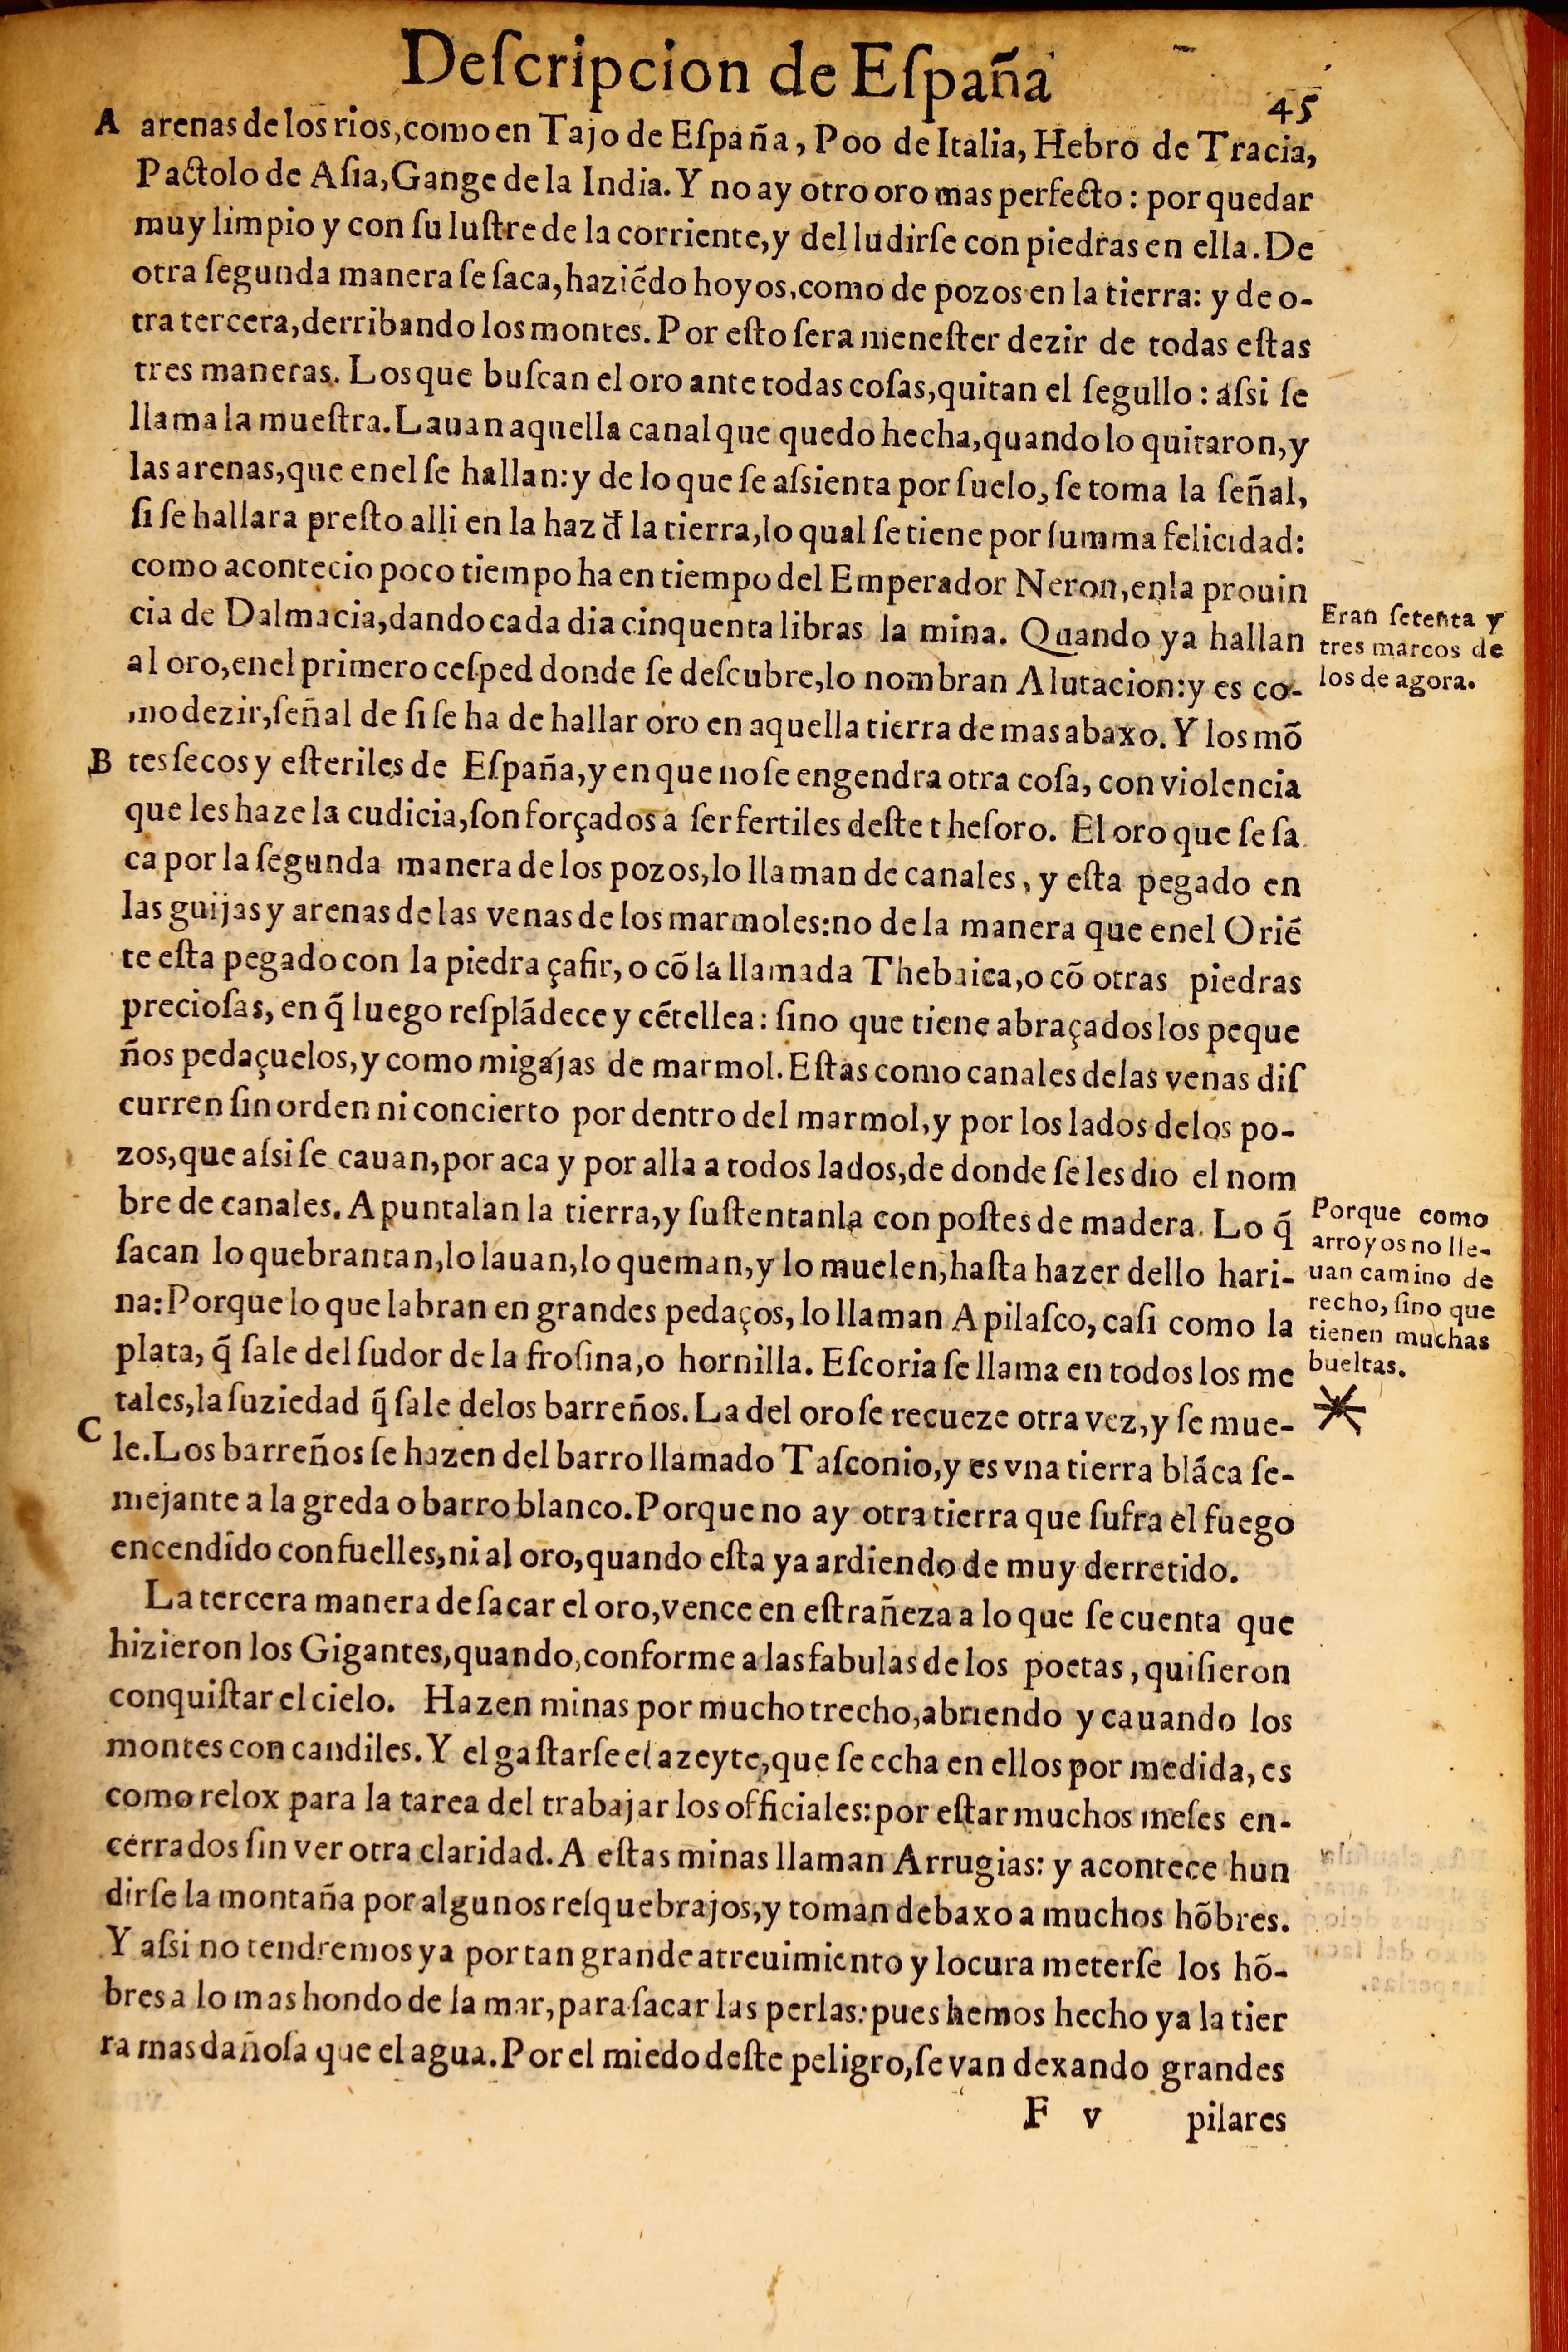 Deſcripcion de Eſpaña
45
A arenas de los rios, como en Tajo de Eſpaña, Poo de Italia, Hebro de Tracia,
Pactolo de Aſia, Gange de la India. Y no ay otro oro mas perfecto: por quedar
muy limpio y con ſu luſtre de la corriente, y del ludirſe con piedras en ella. De
otra ſegunda manera ſe ſaca, haziẽdo hoyos, como de pozos en la tierra: y de o-
tra tercera, derribando los montes. Por eſto ſera meneſter dezir de todas eſtas
tres maneras. Los que buſcan el oro ante todas coſas, quitan el ſegullo: aſsi ſe
llama la mueſtra. Lauan aquella canal que quedo hecha, quando lo quitaron, y
las arenas, que enel ſe hallan: y de lo que ſe aſsienta por ſuelo, ſe toma la ſeñal,
ſi ſe hallara preſto alli en la haz đ la tierra, lo qual ſe tiene por ſumma felicidad:
como acontecio poco tiempo ha en tiempo del Emperador Neron, enla prouin
cia de Dalmacia, dando cada dia cinquenta libras la mina. Quando ya hallan
al oro, enel primero ceſped donde ſe deſcubre, lo nombran Alutacion: y es co-
mo dezir, ſeñal de ſi ſe ha de hallar oro en aquella tierra de mas abaxo. Y los mõ
B tes ſecos y eſteriles de Eſpaña, y en que no ſe engendra otra coſa, con violencia
que les haze la cudicia, ſon forçados a ſer fertiles deſte theſoro. El oro que ſe ſa
ca por la ſegunda manera de los pozos, lo llaman de canales, y eſta pegado en
las guijas y arenas de las venas de los marmoles: no de la manera que enel Oriẽ
te eſta pegado con la piedra çafir, o cõ la llamada Thebaica, o cõ otras piedras
precioſas, en q̃ luego reſplãdece y cẽtellea: ſino que tiene abraçados los peque
ños pedaçuelos, y como migajas de marmol. Eſtas como canales delas venas diſ
curren ſin orden ni concierto por dentro del marmol, y por los lados delos po-
zos, que aſsi ſe cauan, por aca y por alla a todos lados, de donde ſe les dio el nom
bre de canales. Apuntalan la tierra, y ſuſtentanla con poſtes de madera. Lo q̃
ſacan lo quebrantan, lo lauan, lo queman, y lo muelen, haſta hazer dello hari-
na: Porque lo que labran en grandes pedaços, lo llaman Apilaſco, caſi como la
plata, q̃ ſale del ſudor de la froſina, o hornilla. Eſcoria ſe llama en todos los me
tales, la ſuziedad q̃ ſale delos barreños. La del oro ſe recueze otra vez, y ſe mue-
C le. Los barreños ſe hazen del barro llamado Taſconio, y es vna tierra blãca ſe-
mejante a la greda o barro blanco. Porque no ay otra tierra que ſufra el fuego
encendido con fuelles, ni al oro, quando eſta ya ardiendo de muy derretido.
La tercera manera de ſacar el oro, vence en eſtrañeza a lo que ſe cuenta que
hizieron los Gigantes, quando, conforme a las fabulas de los poetas, quiſieron
conquiſtar el cielo. Hazen minas por mucho trecho, abriendo y cauando los
montes con candiles. Y el gaſtarſe el azeyte, que ſe echa en ellos por medida, es
como relox para la tarea del trabajar los officiales: por eſtar muchos meſes en-
cerrados ſin ver otra claridad. A eſtas minas llaman Arrugias: y acontece hun
dirſe la montaña por algunos reſquebrajos, y toman debaxo a muchos hõbres.
Y aſsi no tendremos ya por tan grande atreuimiento y locura meterſe los hõ-
bres a lo mas hondo de la mar, para ſacar las perlas: pues hemos hecho ya la tier
ra mas dañoſa que el agua. Por el miedo deſte peligro, ſe van dexando grandes
F v pilares
Eran ſetenta y
tres marcos de
los de agora.
Porque como
arroyos no lle-
uan camino de
recho, ſino que
tienen muchas
bueltas.